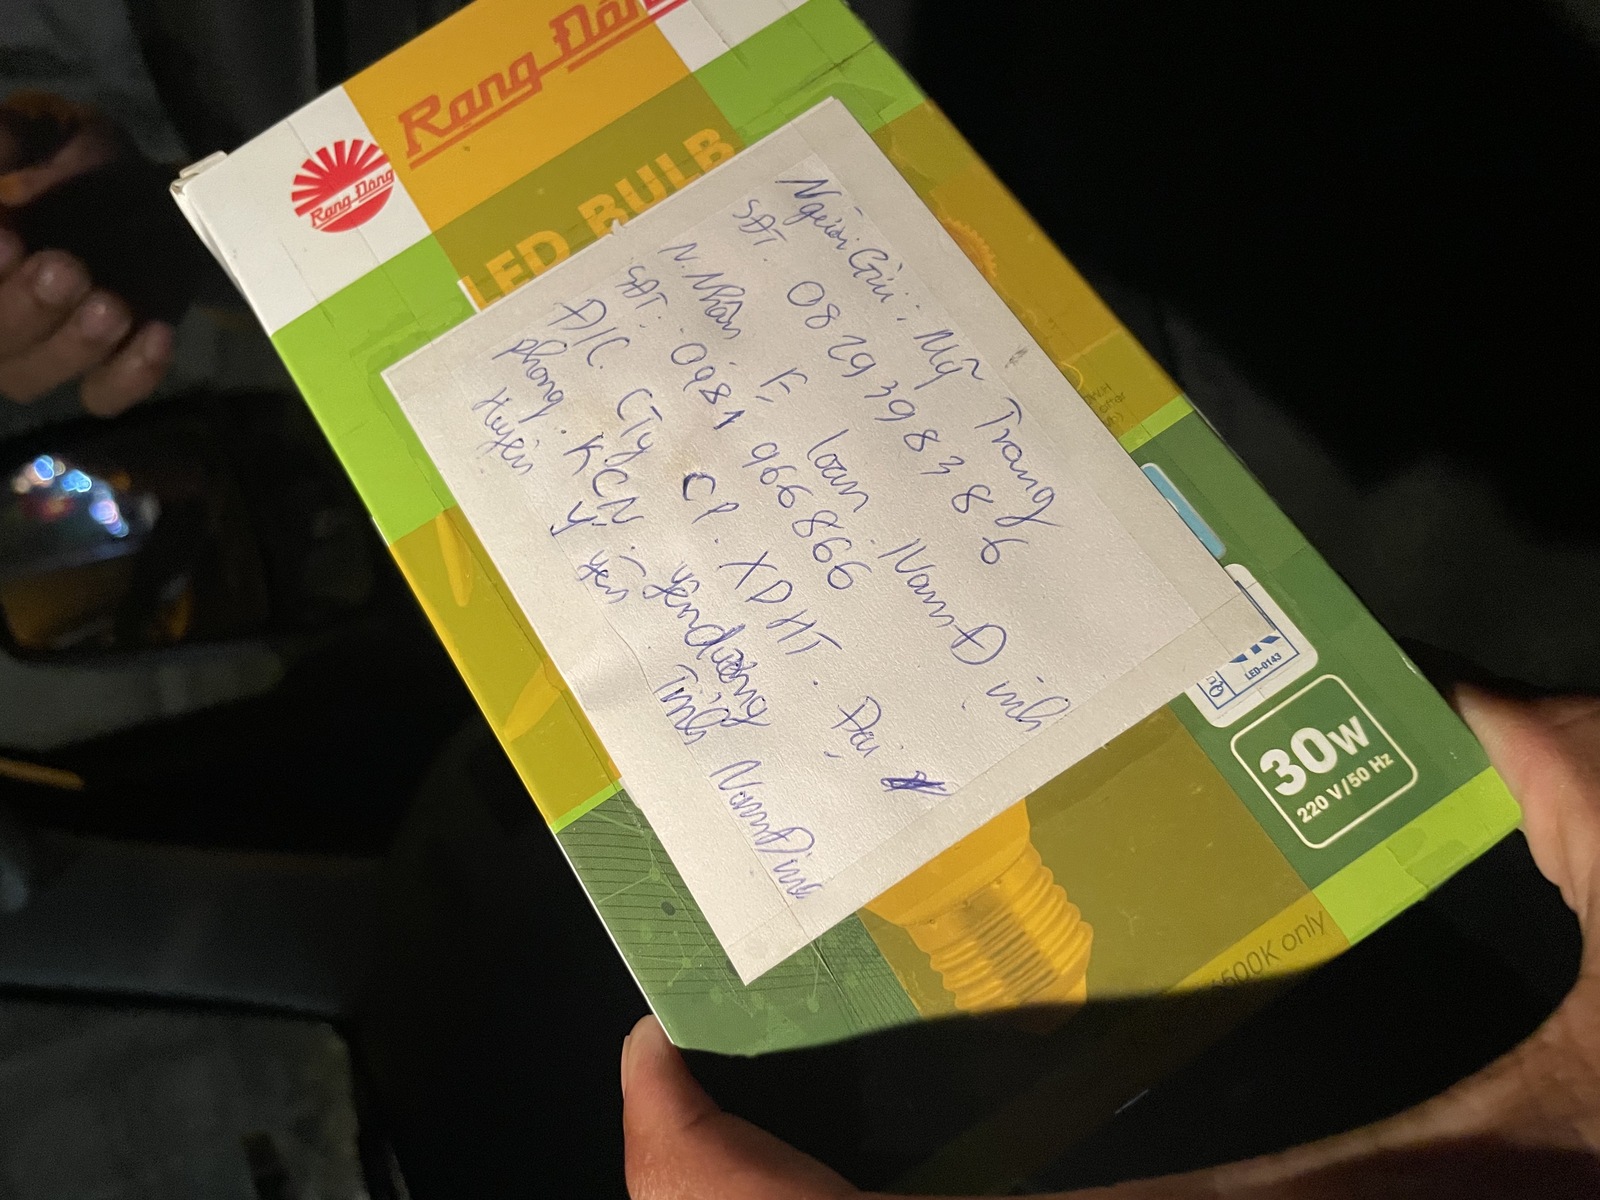 Rạng Đông
Rạng Đông
LED BULB
Người Gửi: Mỹ Trang
SĐT: 0829398386
N. Nhận: K, loan. Nam Định
SĐT: 0981 966 866
Đ/C. CTy CP. XDHT. Đại
phong. KCN. Yên dương
Huyện Ý Yên Tỉnh Nam Định
LED-0143
30W
220 V/50 Hz
6500K only